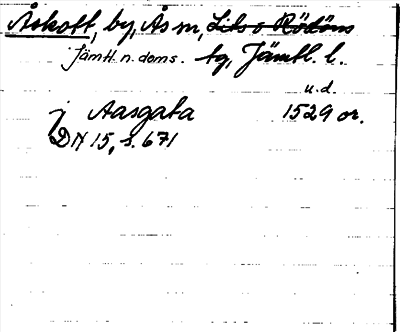 Åskott, by, Ås sn, Lits o Rödöns
Jämtl. n. doms. tg, Jämtl. l.
u.d.
j Aasgata 1529 or.
DN 15, s. 671